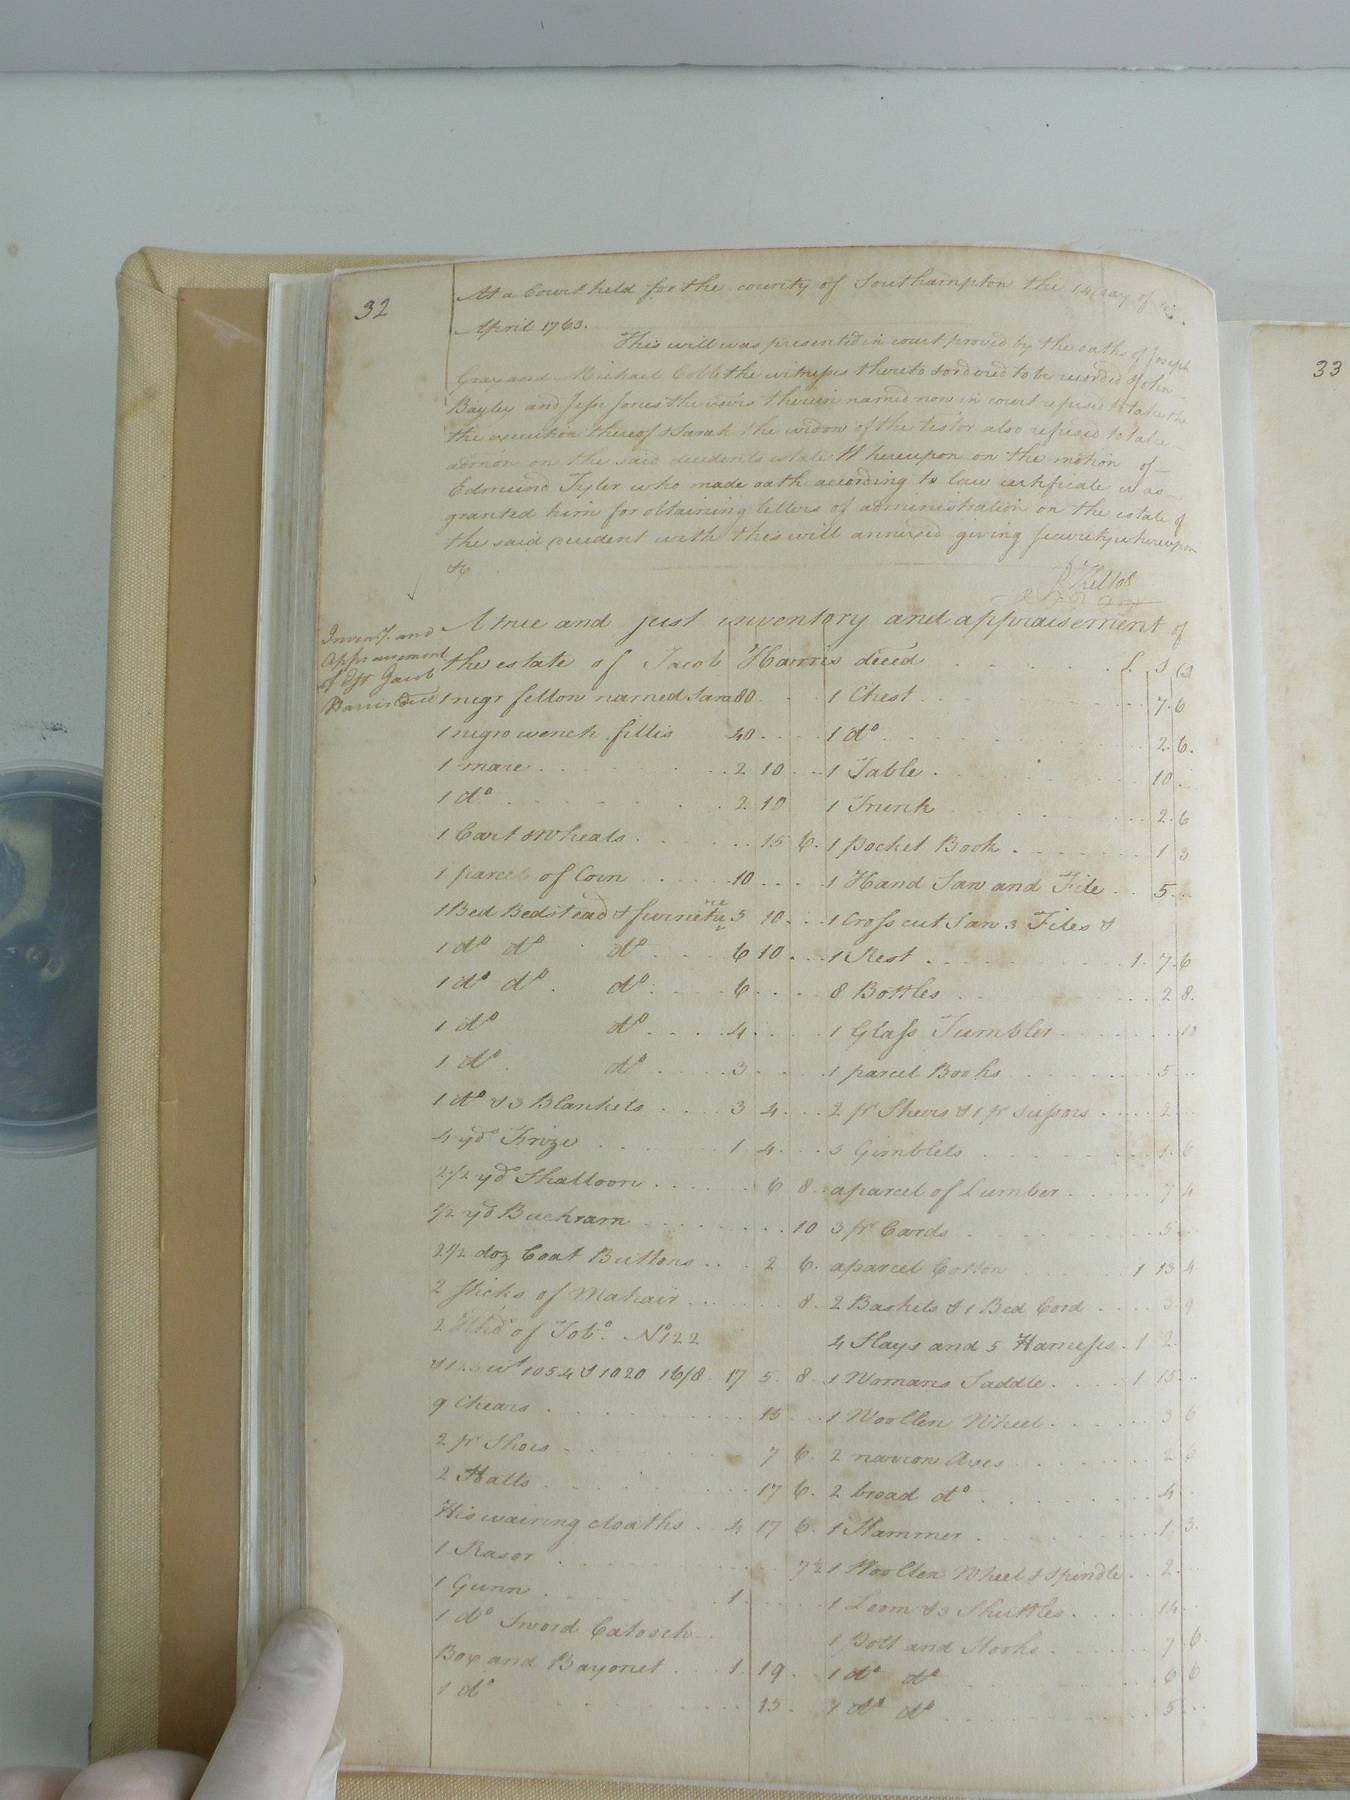 32
At a Court held for the county of Southampton the 14 day of
April 1763.
This will was presented in court proved by the oaths of Joseph
Gray and Michael Cobb the witnesses thereto & ordered to be recorded & John
Bayley and Jesse Jones the exors therein named now in court refused to take the
the execution thereof & Sarah the widow of the testor also refused to take
admon on the said decedents estate Whereupon on the motion of
Edmund Tyler who made oath according to law certificate was
granted him for obtaining letters of administration on the estate of
the said decedent with this will annexed giving security whereupon
&c
R Kello
Inventy. and
Appraisement
of Est Jacob
Harris Decd
A true and just inventory and appraisement of
the estate of Jacob Harris deced £ S D
1 negr fellow named Sam 80
1 negro wench fillis 40
1 mare 2 10
1 do 2 10
1 Cart & Wheals 15 6
1 parcel of Corn 10
1 Bed Bedstead & furnetuere 5 10
1 do do do 6 10
1 do do do 6
1 do do 4
1 do do 3
1 do & 3 Blankets 3 4
4 yd Frize 1 4
2 1/2 yd Shalloon 6 8
1/2 yd Buckram 10
2 1/2 doz Coat Buttons 2 6
2 sticks of Mahair 8
2 Hhd of Tobo. No 122
& 123 wt 1054 & 1020 16/8 17 5 8
9 Chears 15
2 pr Shoes 7 6
2 Hatts 17 6
His wairing cloaths 4 17 6
1 Rasor 7 1/2
1 Gunn 1
1 do Sword Catosch
Box and Bayonet 1 19
1 do 15
1 Chest 7 6
1 do 2 6
1 Table 10
1 Trunk 2 6
1 Pocket Book 1 3
1 Hand Saw and File 5
1 Cross cut Saw 3 Files &
1 Rest 1 7 6
8 Bottles 2 8
1 Glass Tumbler 10
1 parcel Books 5
2 pr Shears & 1 pr scissors 2
3 Gimblets 1 6
a parcel of Lumber 7 4
3 pr Cards 5
a parcel Cotton 1 13 4
2 Baskets & 1 Bed Cord 3 9
4 Slays and 5 Harness 1 2
1 Womans Saddle 1 15
1 Woollen Wheel 3 6
2 narrow Axes 2 6
2 broad do 4
1 Hammer 1 3
1 Woollen Wheel & Spindle 2
1 Loom & 3 Shuttles 14
1 Pott and Hooks 7 6
1 do do 6 6
1 do do 5
33